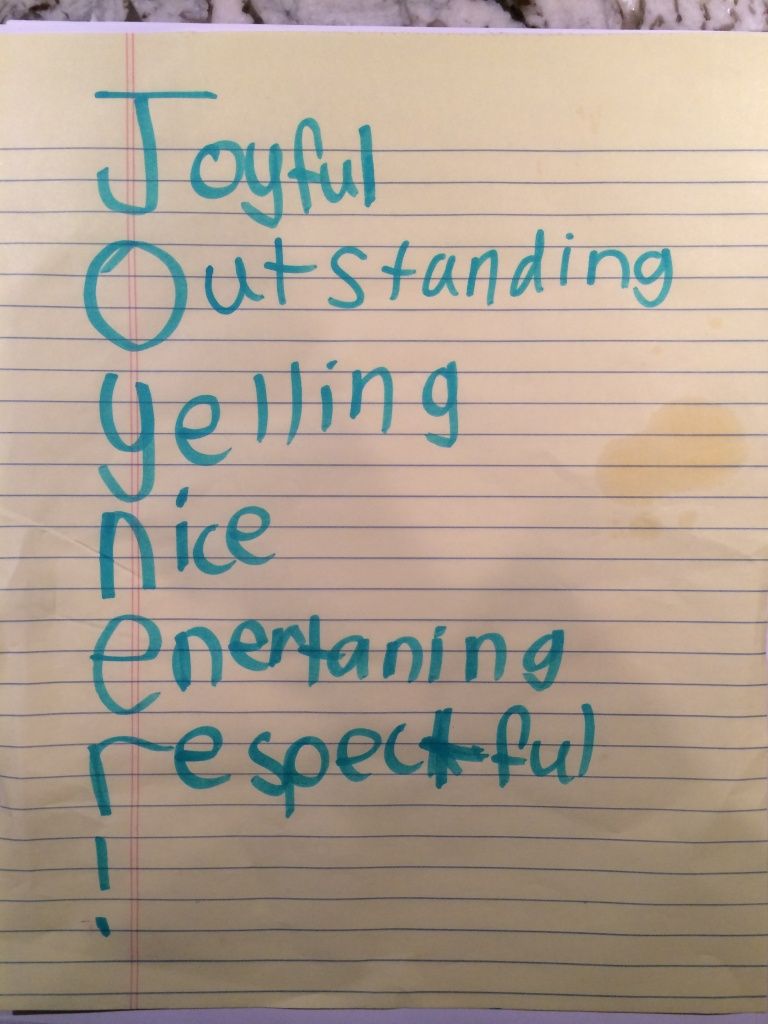 Joyful
Outstanding
yelling
nice
enertaning
respectful
!